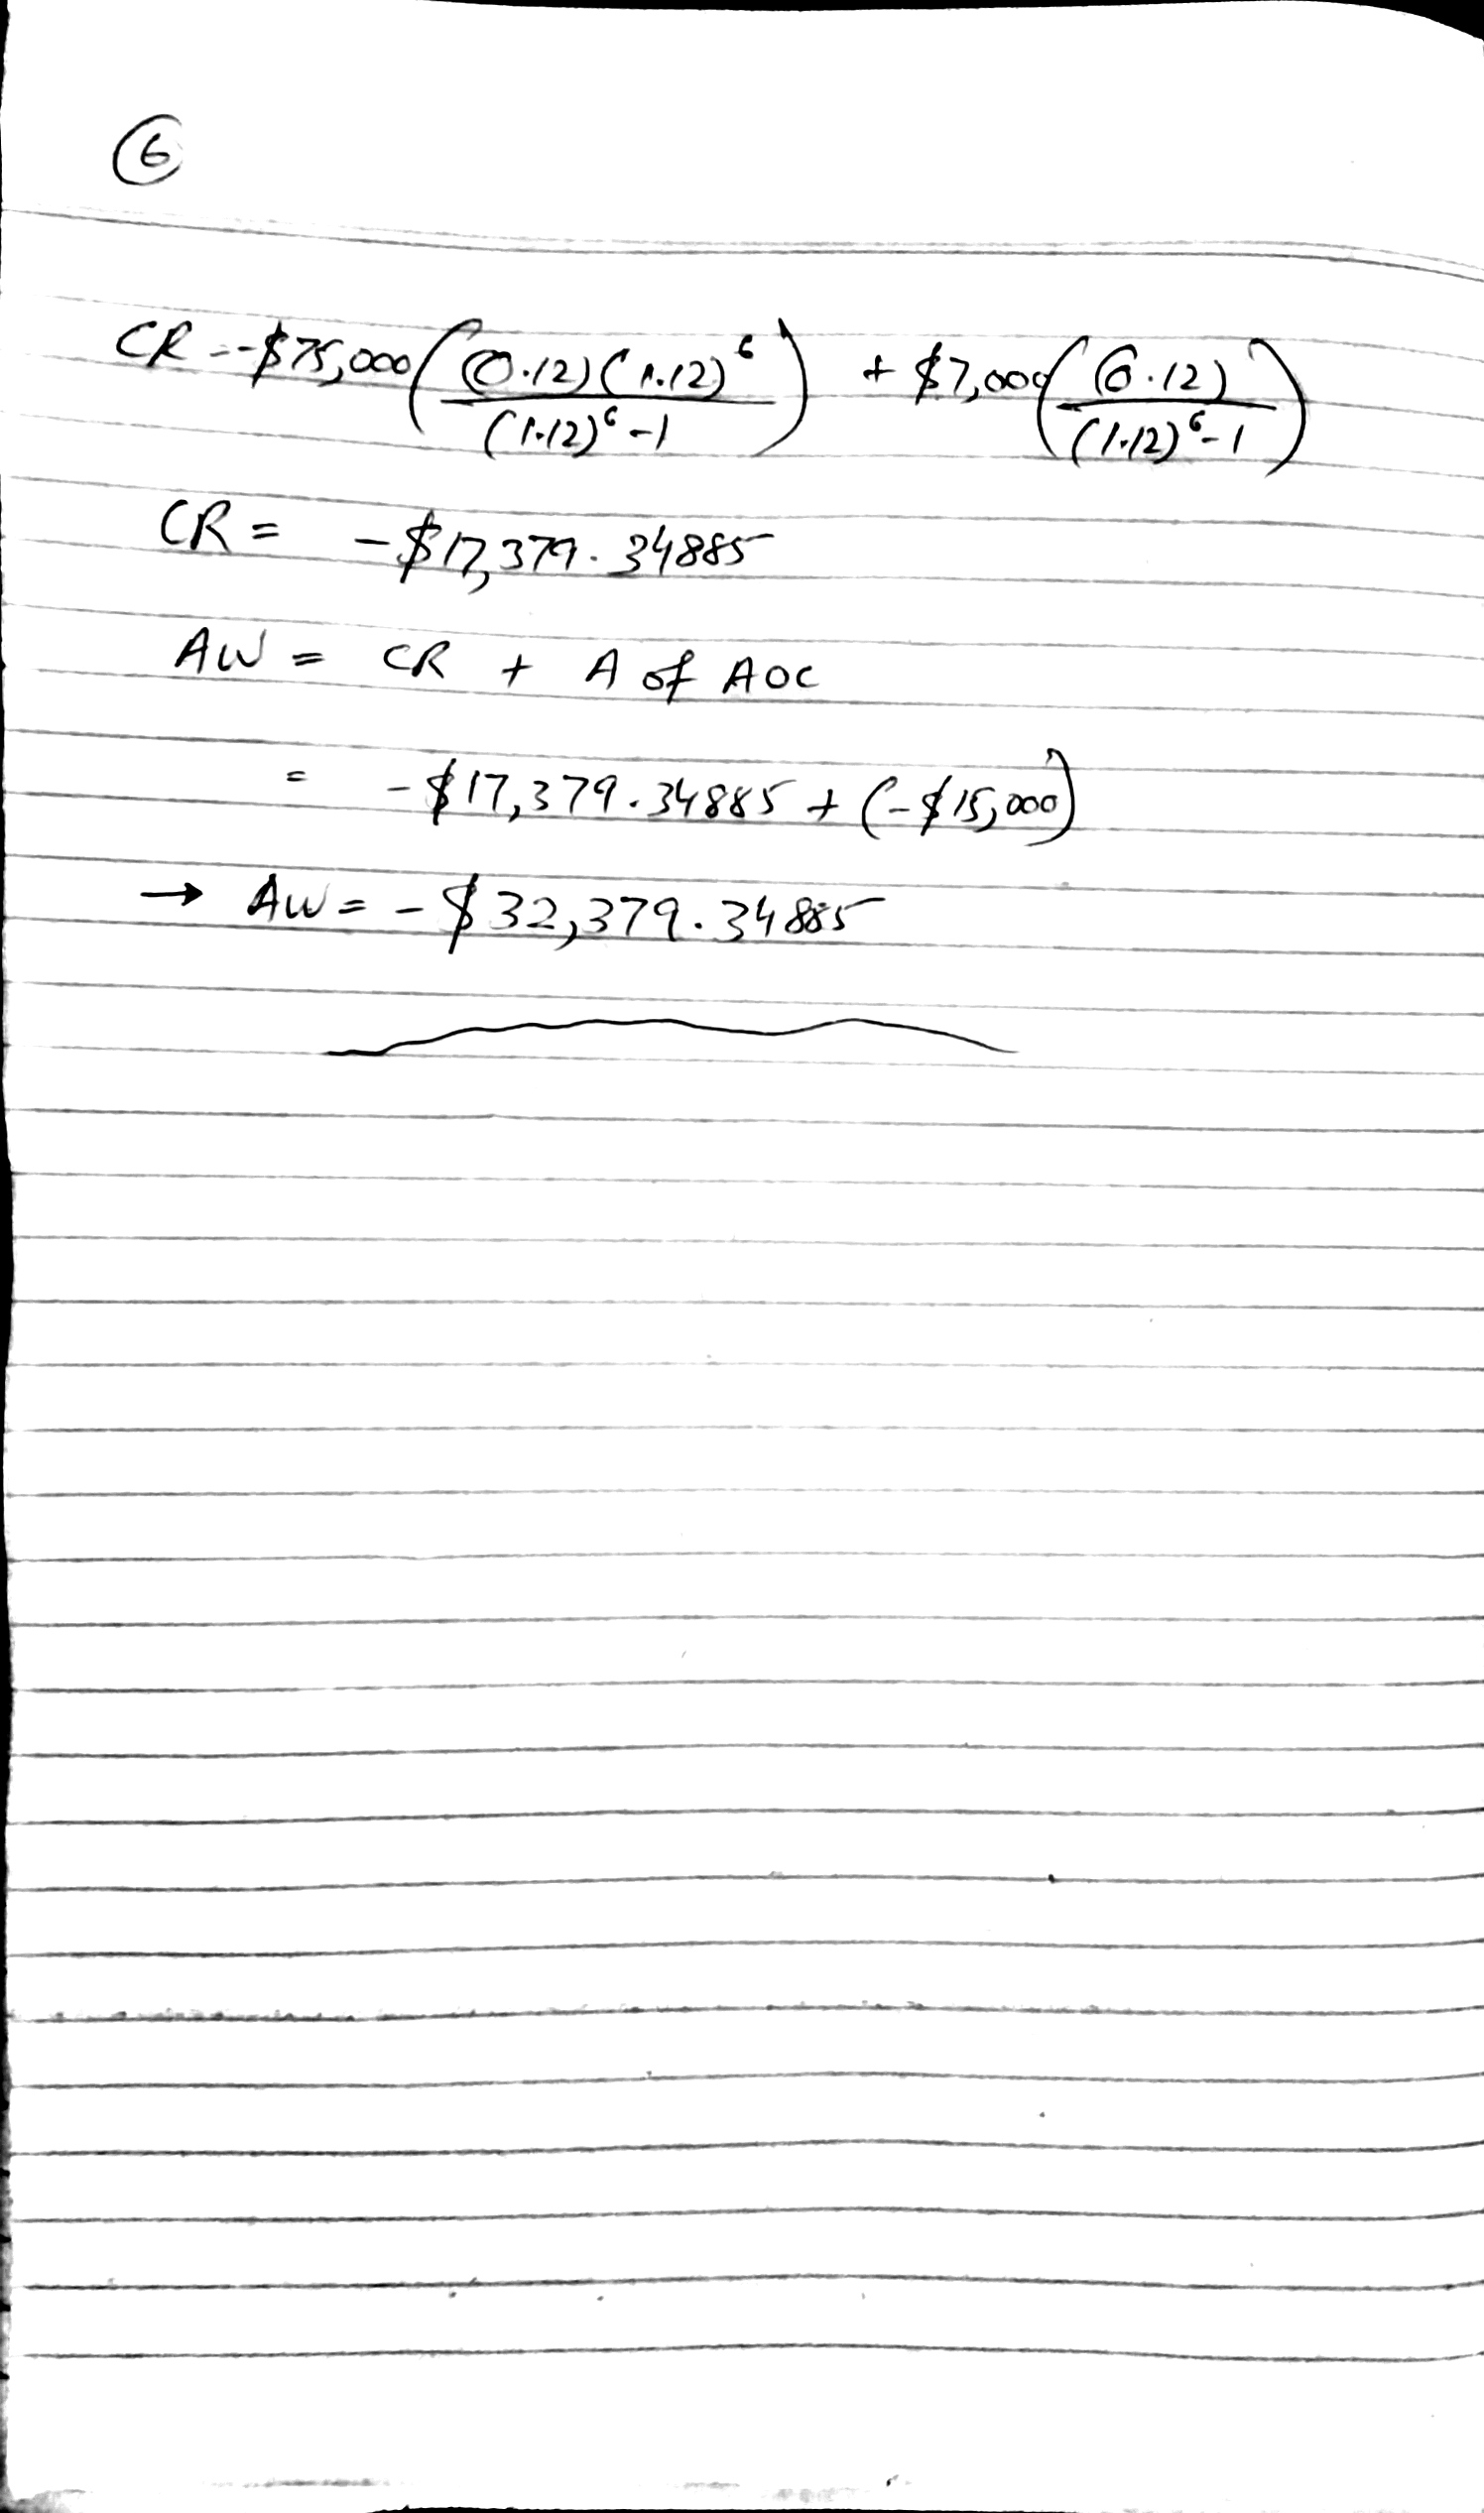 6
CR = -$75,000 ( (0.12)(1.12)^6 / (1.12)^6 - 1 ) + $7,000 ( (0.12) / (1.12)^6 - 1 )
CR = -$17,379.34885
AW = CR + A of AOC
= -$17,379.34885 + (-$15,000)
→ AW = -$32,379.34885